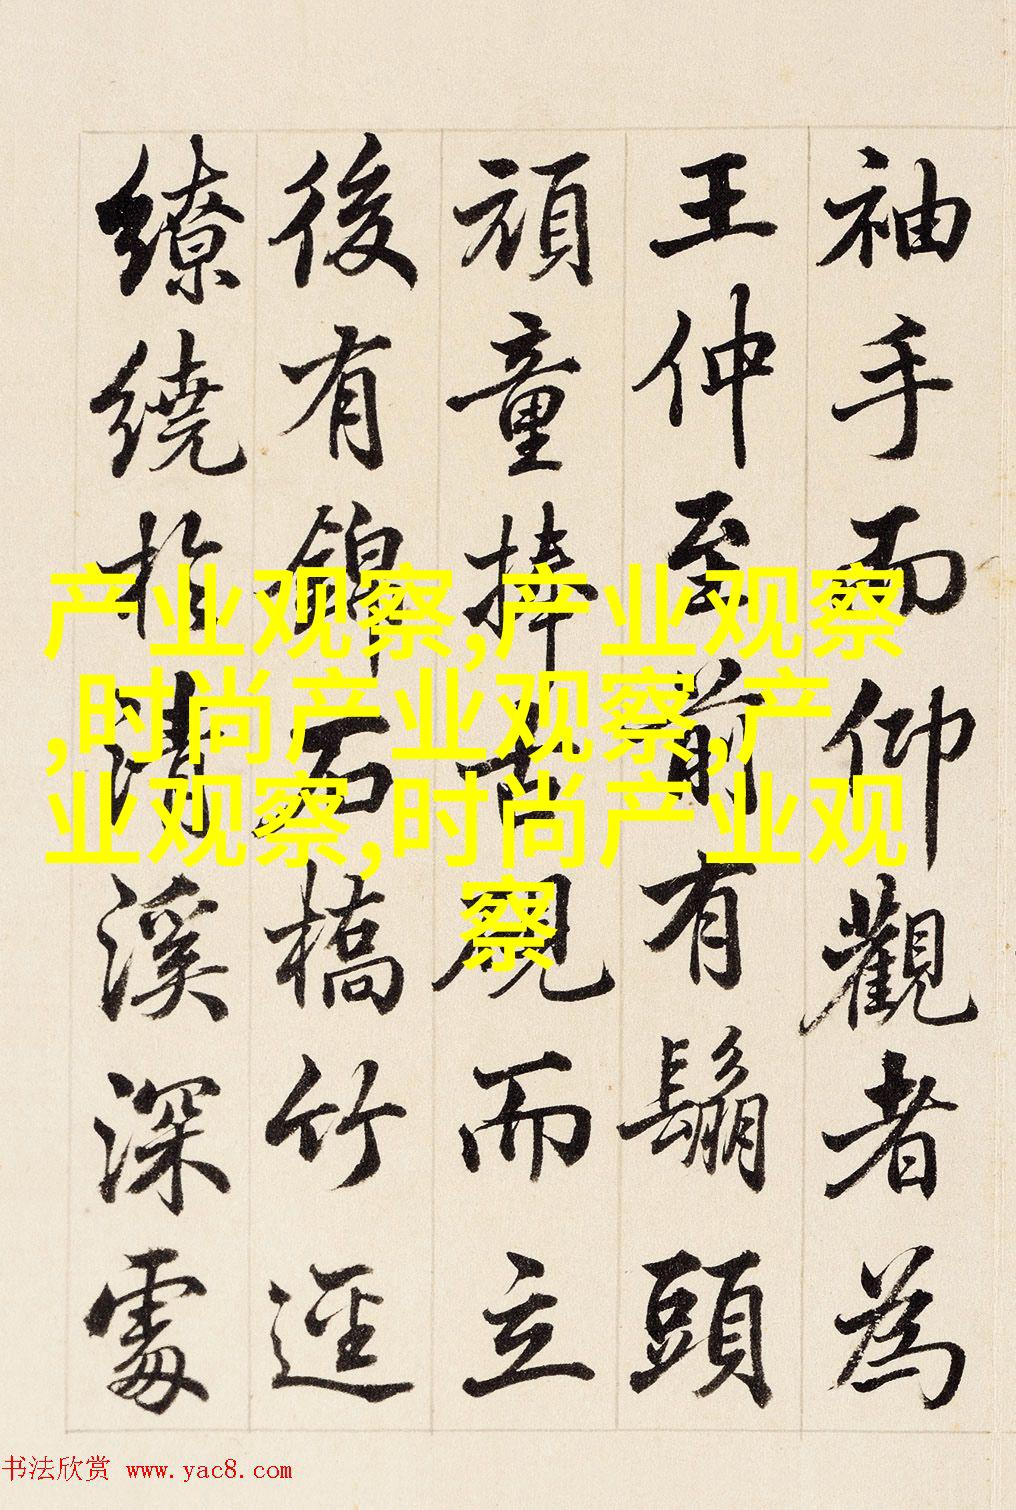 袖手而仰觀者為
王仲至前有鬅頭
頑童捧古硯而立
後有錦石橋竹逕
繚繞於清溪深處
产业观察,产业观察
,时尚产业观察,产
业观察,时尚产业观
察
书法欣赏 www.yac8.com